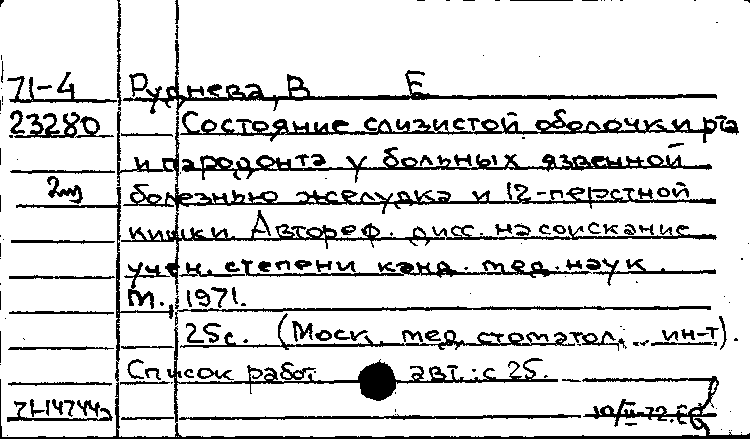 71-4 Руднева, В Е
23280 Состояние слизистой оболочки рта
и пародонта у больных язвенной
2 болезнью желудка и 12-перстной
кишки. Автореф. дисс. на соискание
учен. степени канд. мед. наук.
М., 1971.
25с. (Моск. мед. стоматол. ин-т).
Список работ авт.: с 25.
71-14744а 10/II-72.